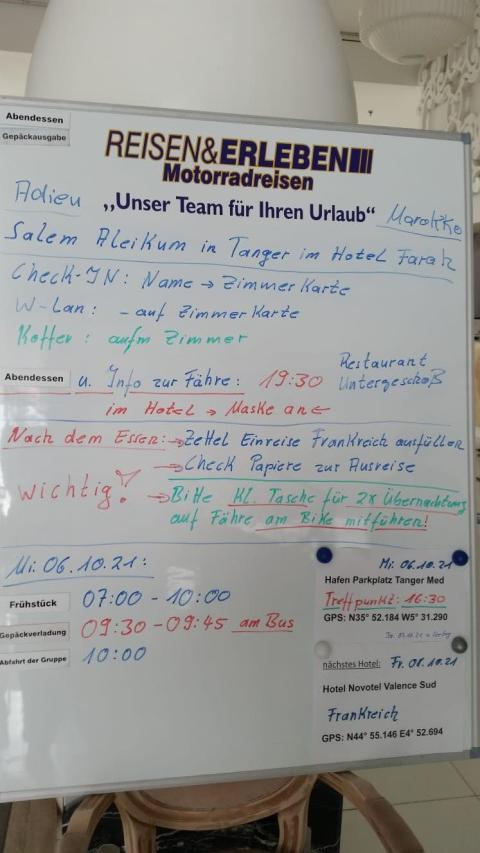 Abendessen
Gepäckausgabe
REISEN&ERLEBEN
Motorradreisen
Adieu „Unser Team für Ihren Urlaub" Marokko
Salem Aleikum in Tanger im Hotel Farah
Check-IN: Name → Zimmer Karte
W-Lan: - auf Zimmer Karte
Koffer: aufm Zimmer
Abendessen u. Info zur Fähre: 19:30 Restaurant Untergeschoß
im Hotel → Maske an ←
Nach dem Essen: → Zettel Einreise Frankreich ausfüllen
→ Check Papiere zur Ausreise
wichtig! → Bitte kl. Tasche für 2x Übernachtung
auf Fähre am Bike mitführen!
Mi. 06.10.21:
Frühstück 07:00 - 10:00
Gepäckverladung 09:30 - 09:45 am Bus
Abfahrt der Gruppe 10:00
Mi. 06.10.21
Hafen Parkplatz Tanger Med
Treffpunkt: 16:30
GPS: N35° 52.184 W5° 31.290
nächstes Hotel: Fr. 08.10.21
Hotel Novotel Valence Sud
Frankreich
GPS: N44° 55.146 E4° 52.694